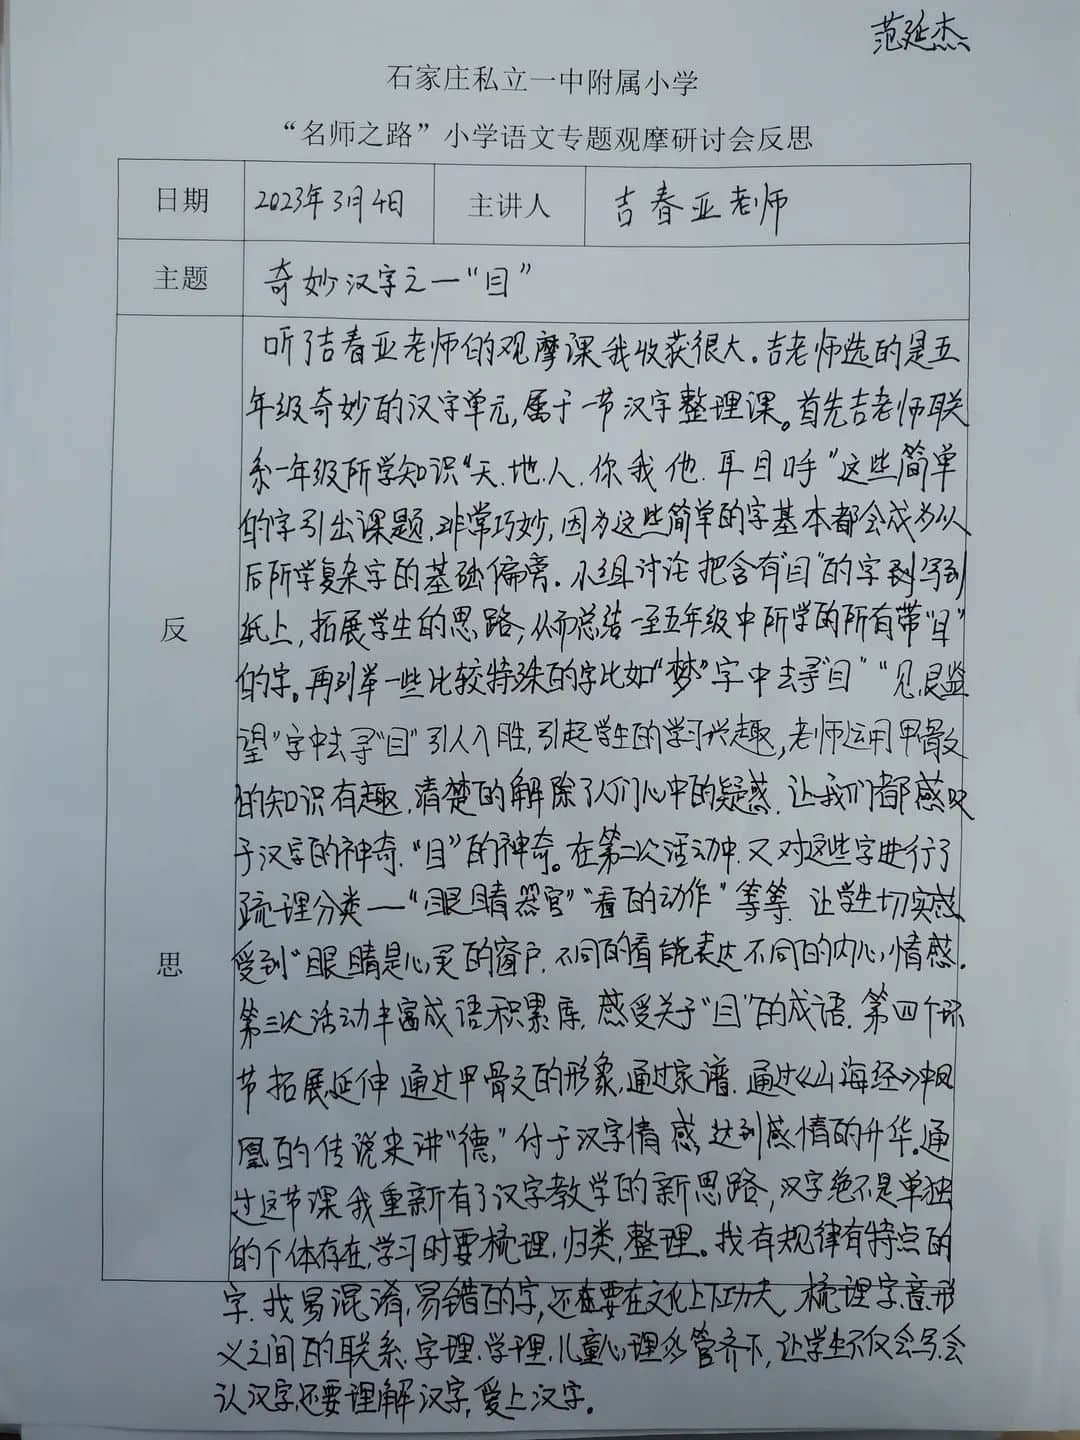 范延杰
石家庄私立一中附属小学
“名师之路”小学语文专题观摩研讨会反思
日期 2023年3月4日 主讲人 吉春亚老师
主题 奇妙汉字之一“目”
反思
听了吉春亚老师的观摩课我收获很大。吉老师选的是五
年级奇妙的汉字单元,属于一节汉字整理课。首先吉老师联
系一年级所学知识“天.地.人.你我他.耳目口手”这些简单
的字引出课题,非常巧妙,因为这些简单的字基本都会成为以
后所学复杂字的基础偏旁。小组讨论把含有“目”的字到写到
纸上,拓展学生的思路,从而总结一至五年级中所学的所有带“目”
的字。再列举一些比较特殊的字比如“梦”字中去寻“目”“见,艮监
望”字中去寻“目”引人入胜,引起学生的学习兴趣,老师运用甲骨文
的知识有趣,清楚的解除了人们心中的疑惑.让我们都感叹
于汉字的神奇.“目”的神奇。在第二次活动中.又对这些字进行了
疏理分类——“眼睛器官”“看的动作”等等.让学生切实感
受到“眼睛是心灵的窗户.不同的看能表达不同的内心,情感.
第三次活动丰富成语积累库,感受关于“目”的成语.第四个环
节拓展延伸 通过甲骨文的形象,通过家谱.通过《山海经》中凤
凰的传说来讲“德”,付于汉字情感,达到感情的升华。通
过这节课我重新有了汉字教学的新思路,汉字绝不是单独
的个体存在,学习时要梳理,归类,整理。找有规律有特点的
字.找易混淆,易错的字,还要在文化上下功夫,梳理字,意,形
义之间的联系.字理.学理.儿童心理多管齐下,让学生不仅会写,会
认汉字,还要理解汉字,爱上汉字。